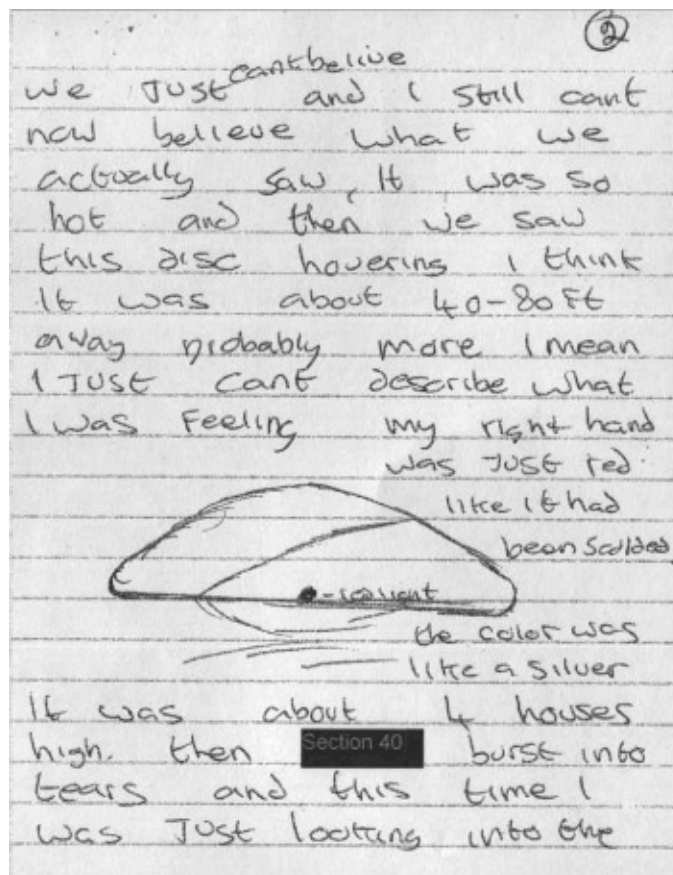 2
cantbelive
we JUST and I still cant
now believe what we
actually saw, It was so
hot and then we saw
this disc hovering I think
It was about 40-80 ft
away probably more I mean
I JUST cant describe what
I was Feeling my right hand
was JUST red.
like it had
been scalded
- red light
the color was
like a silver
It was about 4 houses
high. then Section 40 burst into
tears and this time I
was JUST looking into the